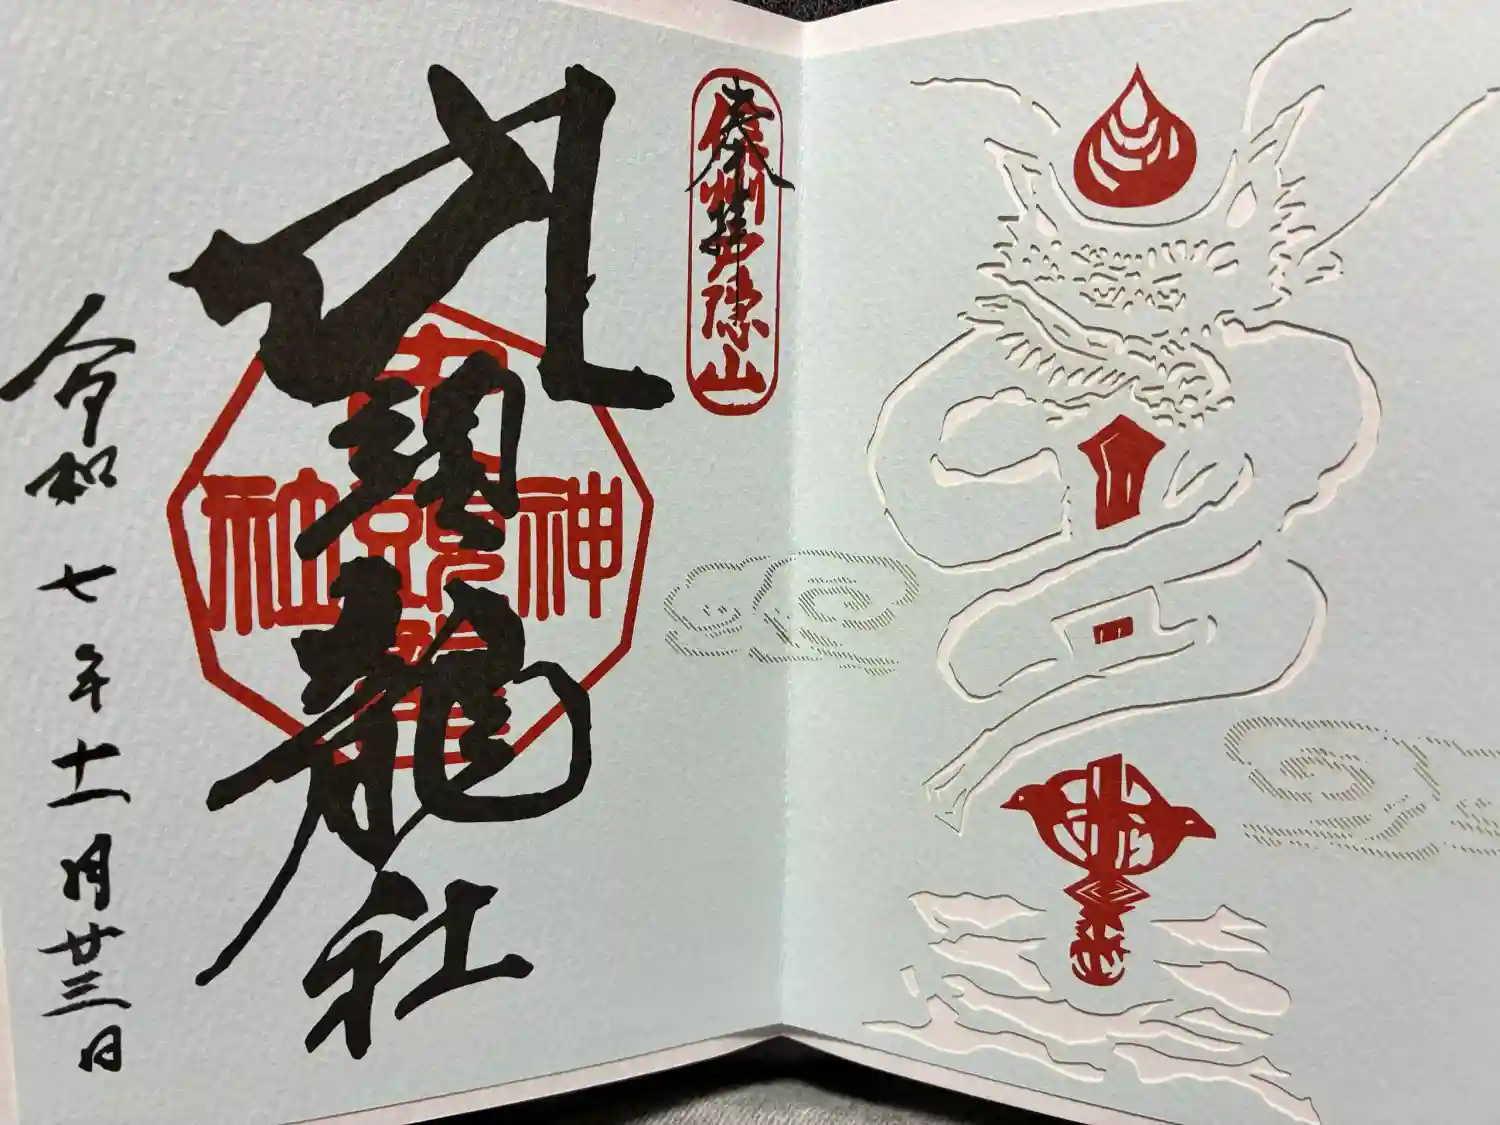 奉拝
信州戸隠山
九頭龍社
九頭龍神社
令和七年十一月廿三日